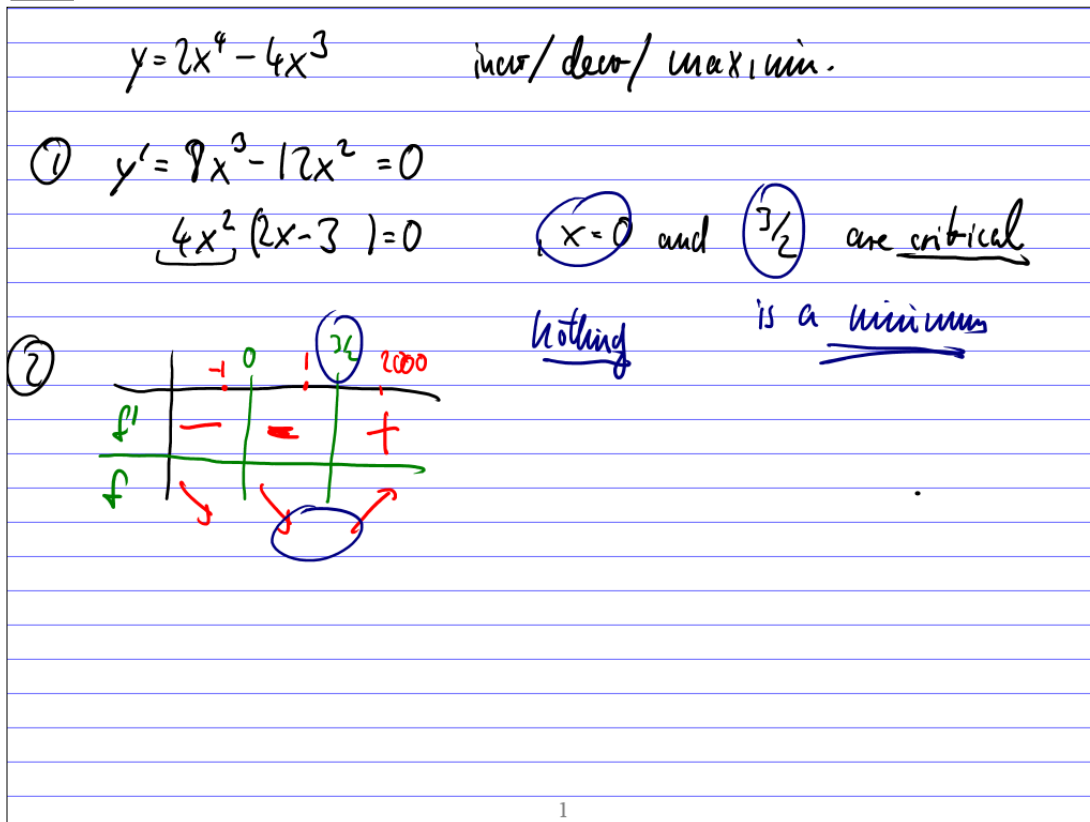 y = 2x⁴ - 4x³ incr/decr/max, min.
① y' = 8x³ - 12x² = 0
4x² (2x - 3) = 0 , x = 0 and 3/2 are critical
nothing is a minimum
② -1 0 1 3/2 2000
f' - - +
f ↘ ↘ ↗
1